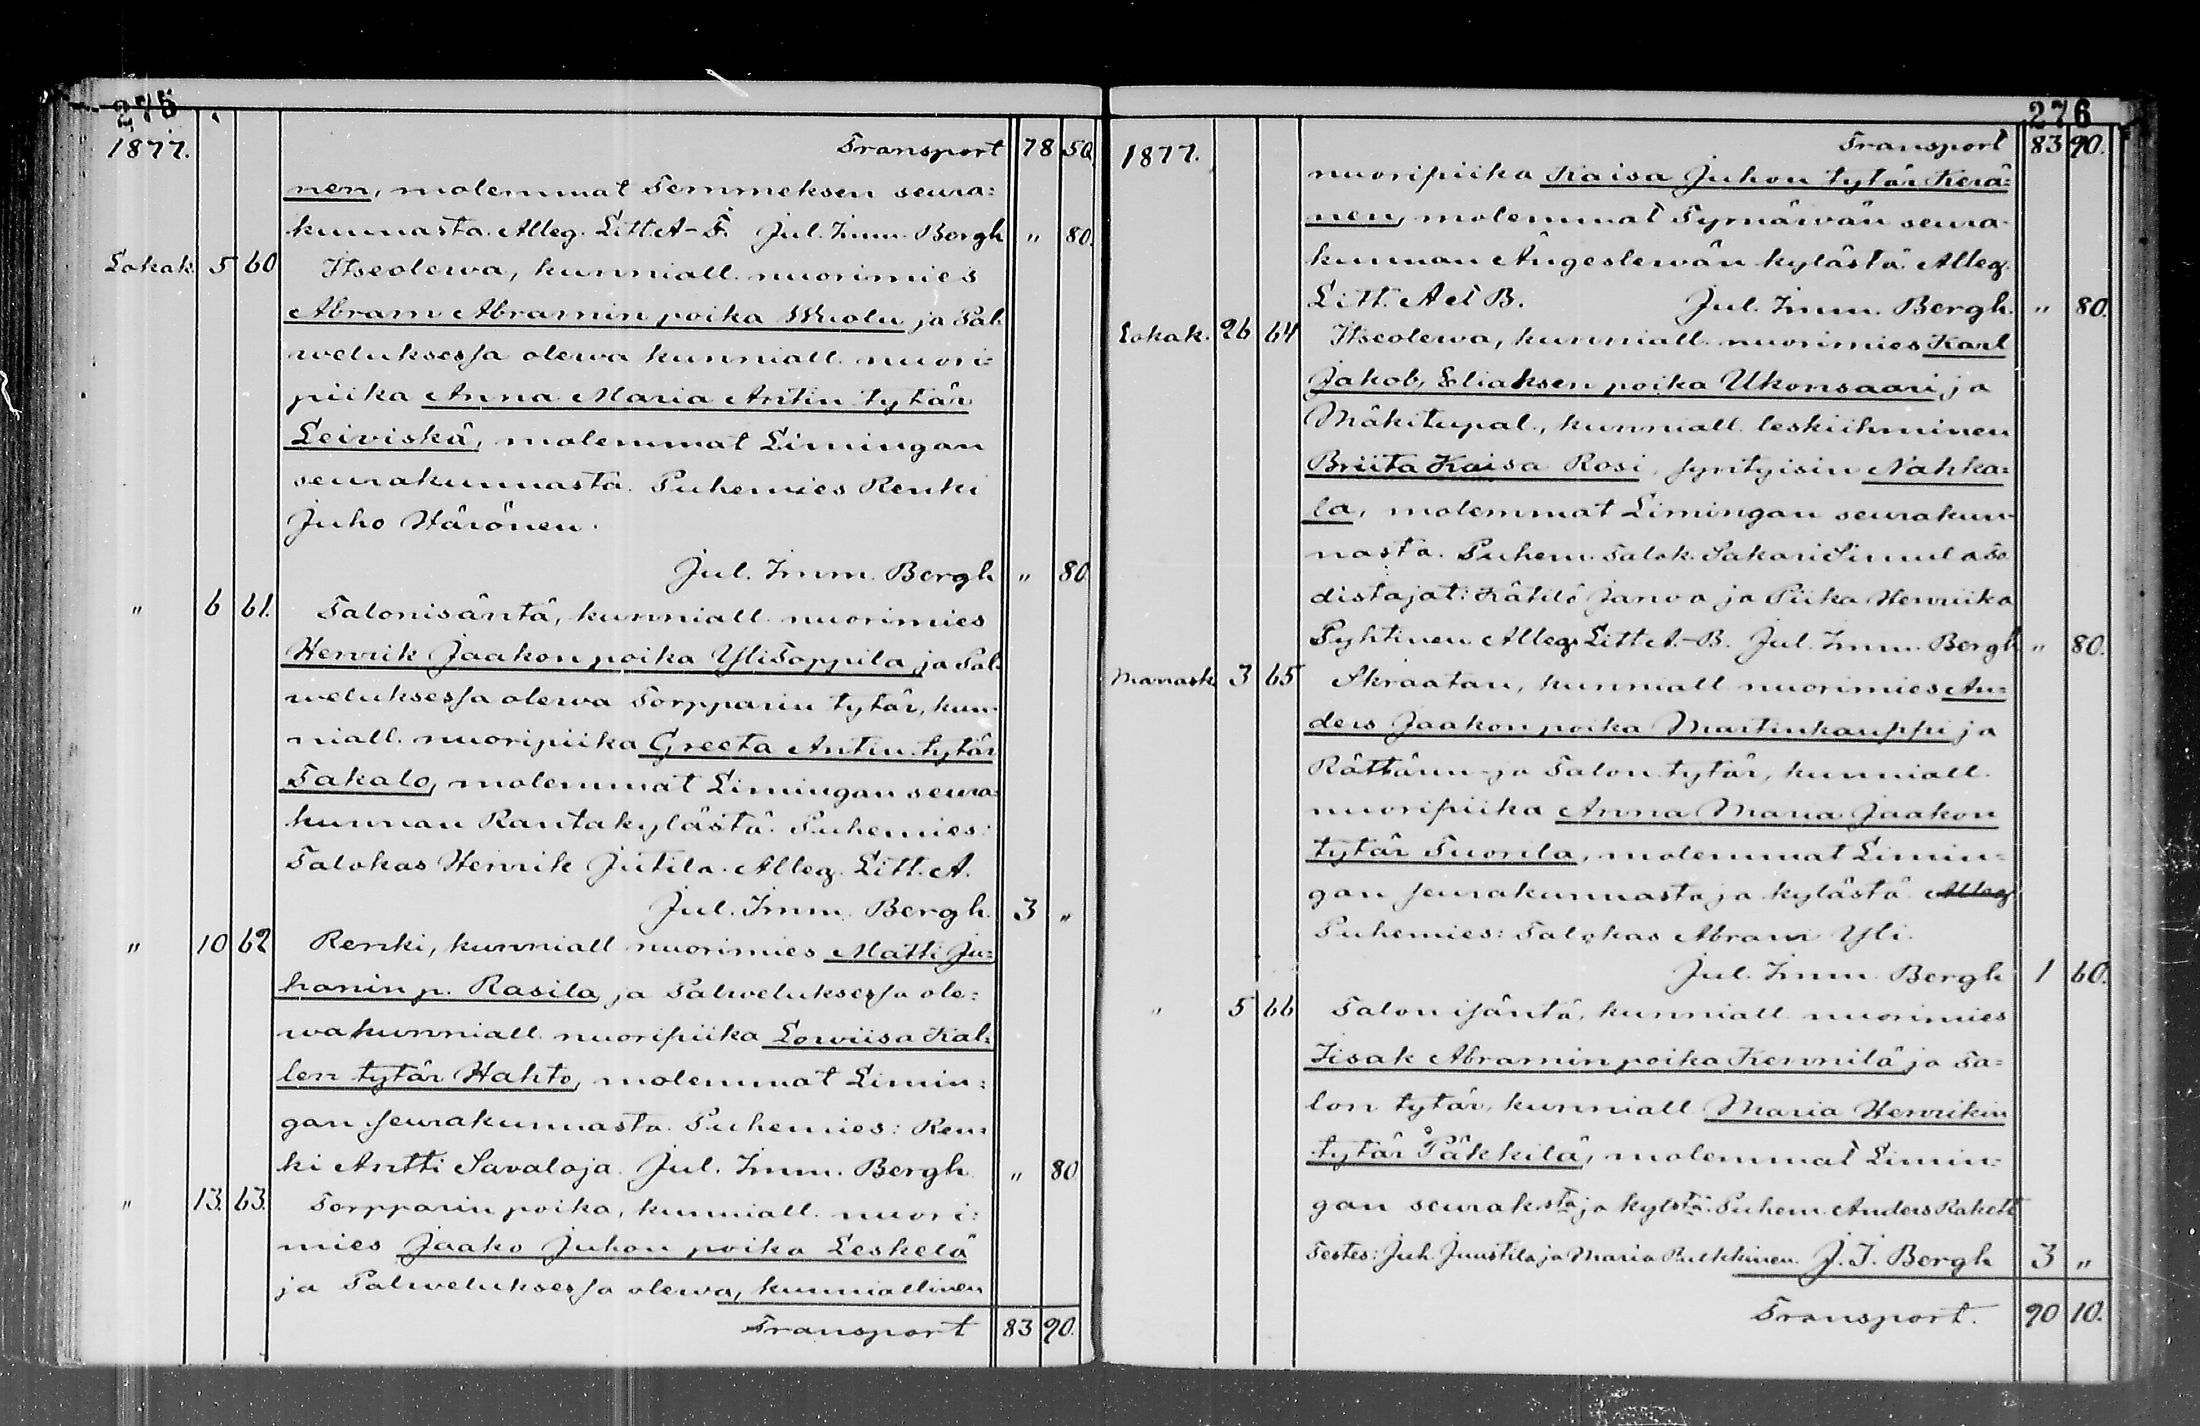 275
1877. Transport 78 50.
nen, molemmat Temmeksen seura=
kunnasta. Alleg. Litt A-F. Jul. Imm. Bergh " 80.
Lokak. 5 60 Itseolewa, kunniall. nuorimies
Abram Abramin poika Wuolu ja Pal-
weluksessa olewa kunniall. nuori=
piika Anna Maria Antin tytär
Leiviskä, molemmat Limingan
seurakunnasta. Puhemies Renki
Juho Härönen.
Jul. Imm. Bergh " 80.
" 6 61. Talonisäntä, kunniall. nuorimies
Henrik Jaakon poika YliToppila, ja Pal-
weluksessa olewa Torpparin tytär, kun-
niall. nuoripiika Greeta Antin tytär
Takalo, molemmat Limingan seura-
kunnan Rantakylästä. Puhemies:
Talokas Henrik Jutila. Alleg. Litt. A.
Jul. Imm. Bergh. 3 "
" 10 62 Renki, kunniall nuorimies Matti Ju=
hanin p. Rasila ja Palweluksessa ole=
wa kunniall. nuoripiika Lowiisa Kal=
len tytär Hahto, molemmat Limin=
gan seurakunnasta. Puhemies: Ren=
ki Antti Savaloja. Jul. Imm. Bergh. " 80
" 13. 63. Torpparin poika, kunniall. nuori=
mies Jaako Juhon poika Leskelä
ja Palweluksessa olewa, kunniallinen
Transport 83 90.
276
1877. Transport 83 90.
nuoripiika Kaisa Juhon tytär Kerä=
nen, molemmat Tyrnäwän seura-
kunnan Ängeslewän kylästä. Alleg.
Litt. A et B. Jul. Imm. Bergh. " 80.
Lokak. 26 64 Itseolewa, kunniall. nuorimies Karl
Jakob, Eliaksen poika Ukonsaari ja
Mäkitupal., kunniall. leskiihminen
Briita Kaisa Rosi, syntyisin Nahka=
la, molemmat Limingan seurakun-
nasta. Puhem. Talok. Sakari Simula To-
distajat: Kätilö Janva ja Piika Henriika
Pyhtinen Alleg. Litt A.-B. Jul. Imm. Bergh " 80.
Marrask. 3 65 Skraatari, kunniall nuorimies An=
ders Jaakon poika Martinkauppi ja
Rättärin ja Talon tytär, kunniall.
nuoripiika Anna Maria Jaakon
tytär Tuorila, molemmat Limin=
gan seurakunnasta ja kylästä Alleg
Puhemies: Talokas Abram Yli.
Jul. Imm. Bergh 1 60.
" 5 66 Talon isäntä, kunniall. nuorimies
Iisak Abramin poika Kennilä ja Ta=
lon tytär, kunniall. Maria Henrikin
tytär Päkkilä, molemmat Limin=
gan seurak:sta ja kylstä. Puhem. Anders Rakett
Testes: Juh. Juustila ja Maria Pulkkinen. J. I. Bergh 3 "
Transport. 90 10.